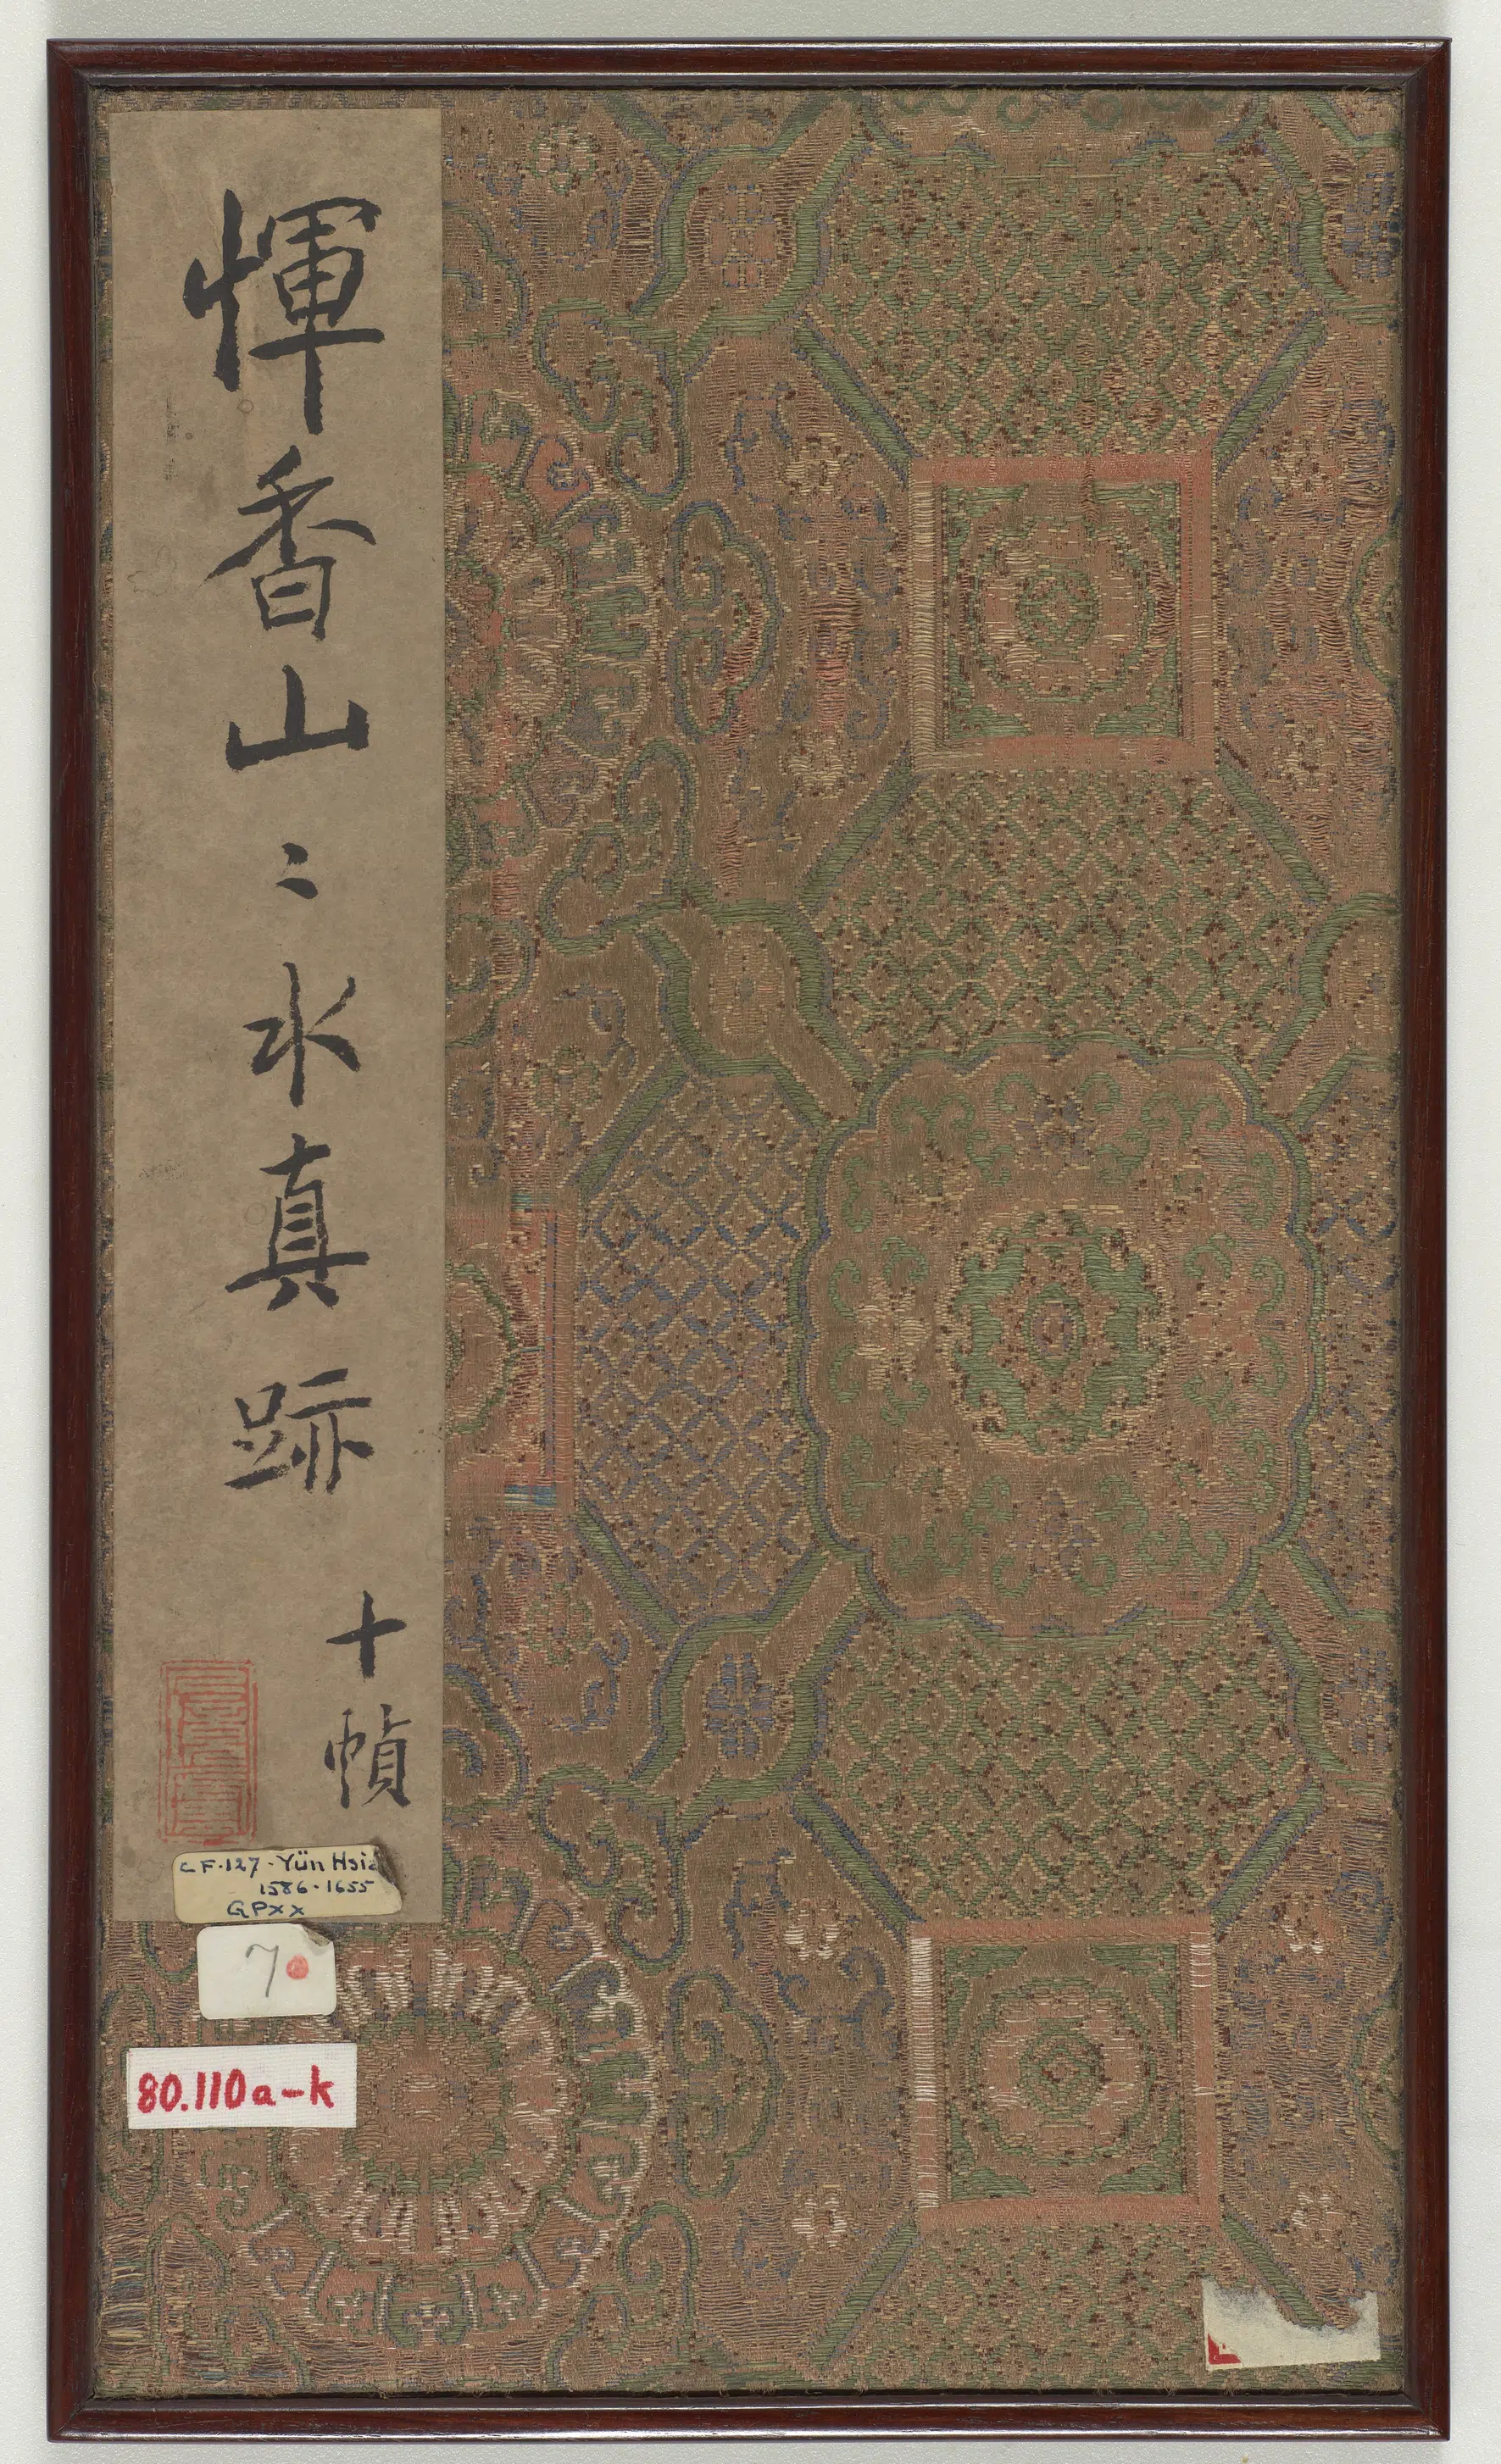 惲香山〻水真跡
十幀
CF·127-Yün Hsia
1586-1655
GPXX
7
80.110a-k